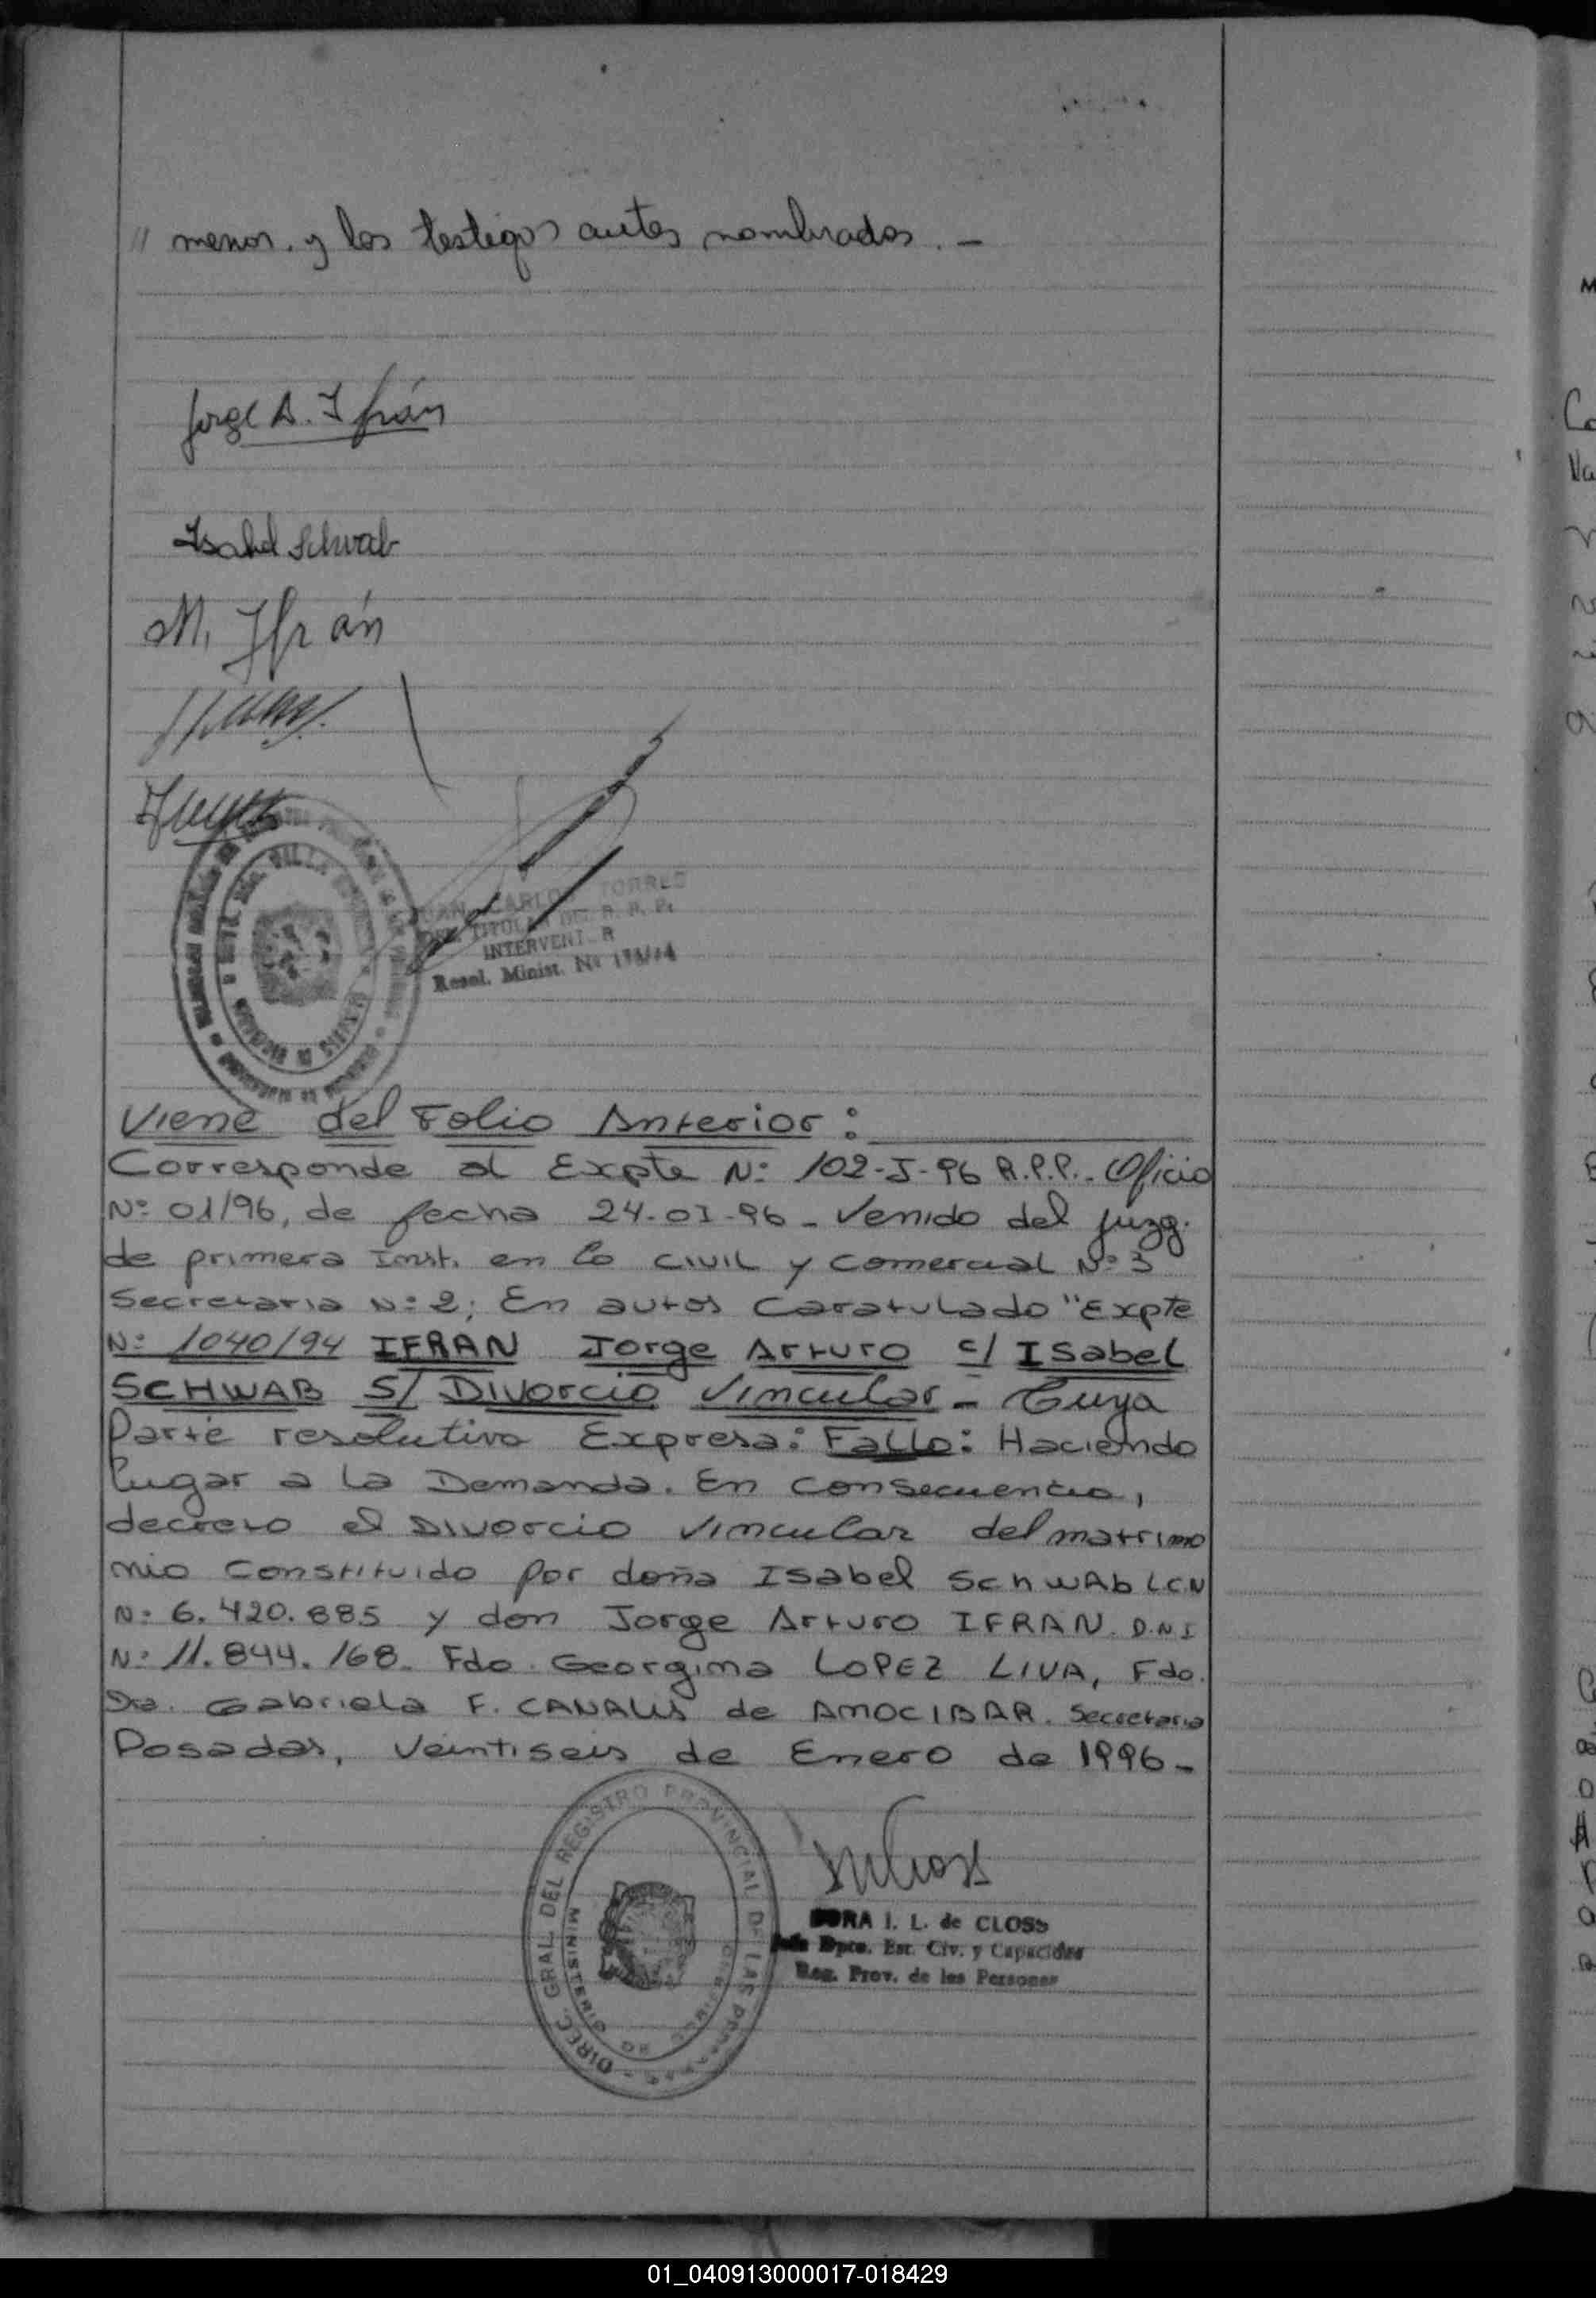 " menor. y los testigos antes nombrados. -
Jorge A. Ifrán
Isabel Schwab
M. Ifrán
JUAN CARLOS TORRES
TITULAR DEL R. P. P.
INTERVENT R
Resol. Minist. Nº
VILLA
Viene del Folio Anterior:
Corresponde al Expte Nº 102-J-96 R.P.P.- Oficio
Nº 01/96, de fecha 24-01-96 - Venido del Juzg.
de primera Inst. en lo CIVIL y comercial Nº 3
Secretaria Nº 2; En autos Caratulado "Expte
Nº 1040/94 IFRAN Jorge Arturo c/ ISabel
SCHWAB S/ Divorcio Vincular - Cuya
Parte resolutiva Expresa: Fallo: Haciendo
lugar a la Demanda. En Consecuencia,
decreto el Divorcio Vincular del matrimo
nio Constituido por doña Isabel SchwAb L.C.N
Nº 6.420.885 y don Jorge Arturo IFRAN. D.N.I
Nº 11.844.168. Fdo. Georgina LOPEZ LIVA, Fdo.
Dra. Gabriela F. CANALIS de AMOCIBAR. Secretaria
Posadas, Veintiseis de Enero de 1996-
DIREC. GRAL. DEL REGISTRO PROVINCIAL DE LAS PERSONAS
MINISTERIO DE GOBIERNO
DORA I. L. de CLOSS
Jefe Dpto. Est. Civ. y Capacidad
Reg. Prov. de las Personas
01_040913000017-018429